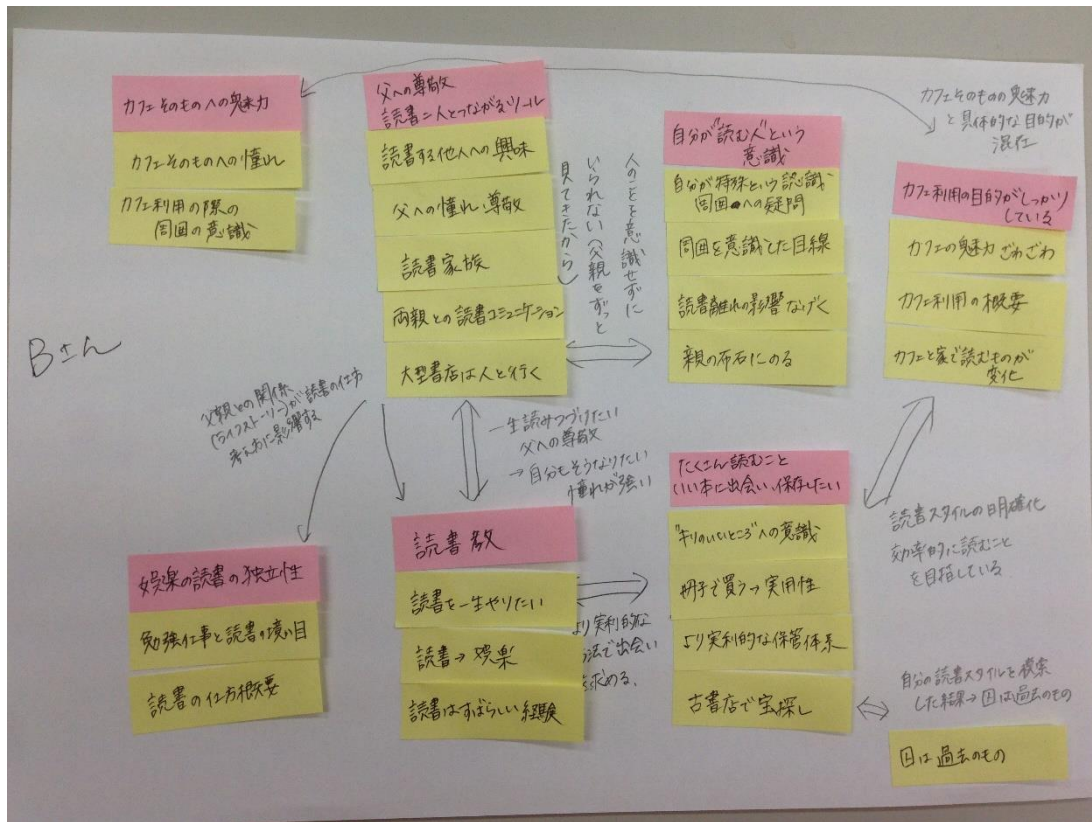 Bさん
カフェそのものへの魅力
カフェそのものへの憧れ
カフェ利用の際の
周囲の意識
父への尊敬
読書=人とつながるツール
読書する他人への興味
父への憧れ 尊敬
読書家族
両親との読書コミュニケーション
大型書店は人と行く
人のことを意識せずに
いられない(父親をずっと
見てきたから)
自分が"読む人"という
意識
自分が特殊という認識
周囲への疑問
周囲を意識した目線
読書離れの影響 なげく
親の布石にのる
カフェそのものの魅力
と具体的な目的が
混在
カフェ利用の目的がしっかり
している
カフェの魅力 ざわざわ
カフェ利用の概要
カフェと家で読むものが
変化
父親との関係
(ライフストーリー)が読書の仕方
考え方に影響する
一生読みつづけたい
父への尊敬
→自分もそうなりたい
憧れが強い
娯楽の読書の独立性
勉強仕事と読書の境い目
読書の仕方概要
読書
読書を一生やりたい
読書→娯楽
読書はすばらしい経験
より実利的な
方法で出会い
を求める。
たくさん読むこと
いい本に出会い、保存したい
"キリのいいところ"への意識
冊子で買う→実用性
より実利的な保管体系
古書店で宝探し
読書スタイルの明確化
効率的に読むこと
を目指している
自分の読書スタイルを模索
した結果→図は過去のもの
図は過去のもの